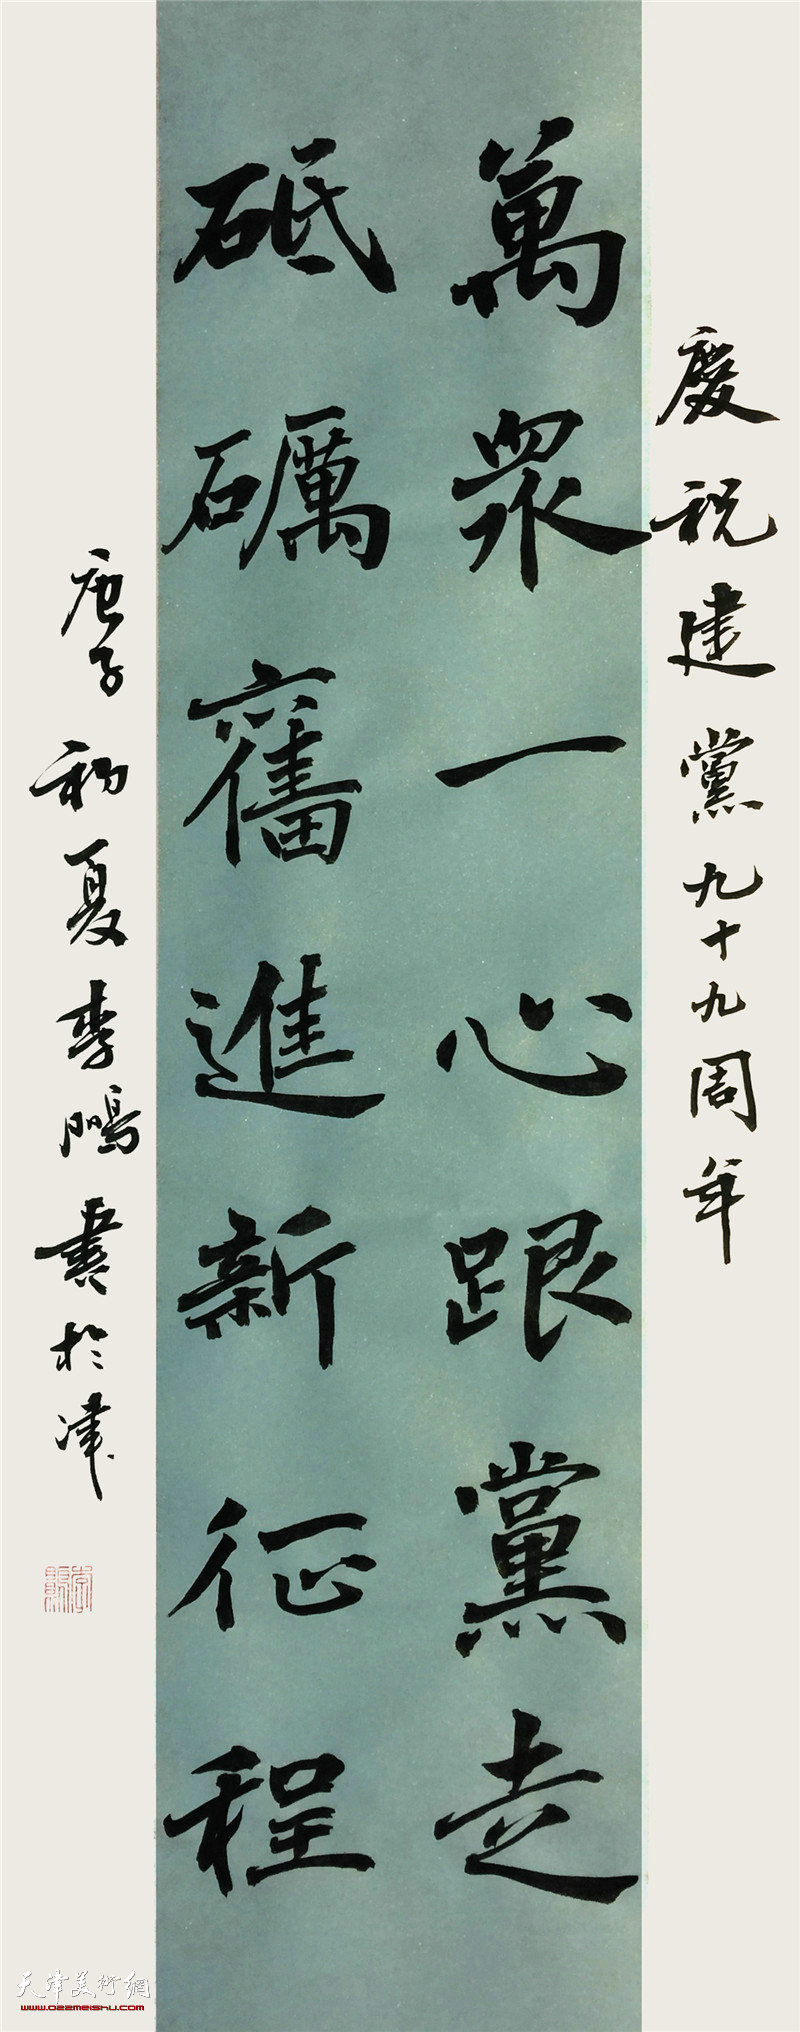 慶祝建黨九十九周年
萬眾一心跟黨走
砥礪奮進新征程
庚子初夏李鵬書於津
天津美术網
www.022meishu.com